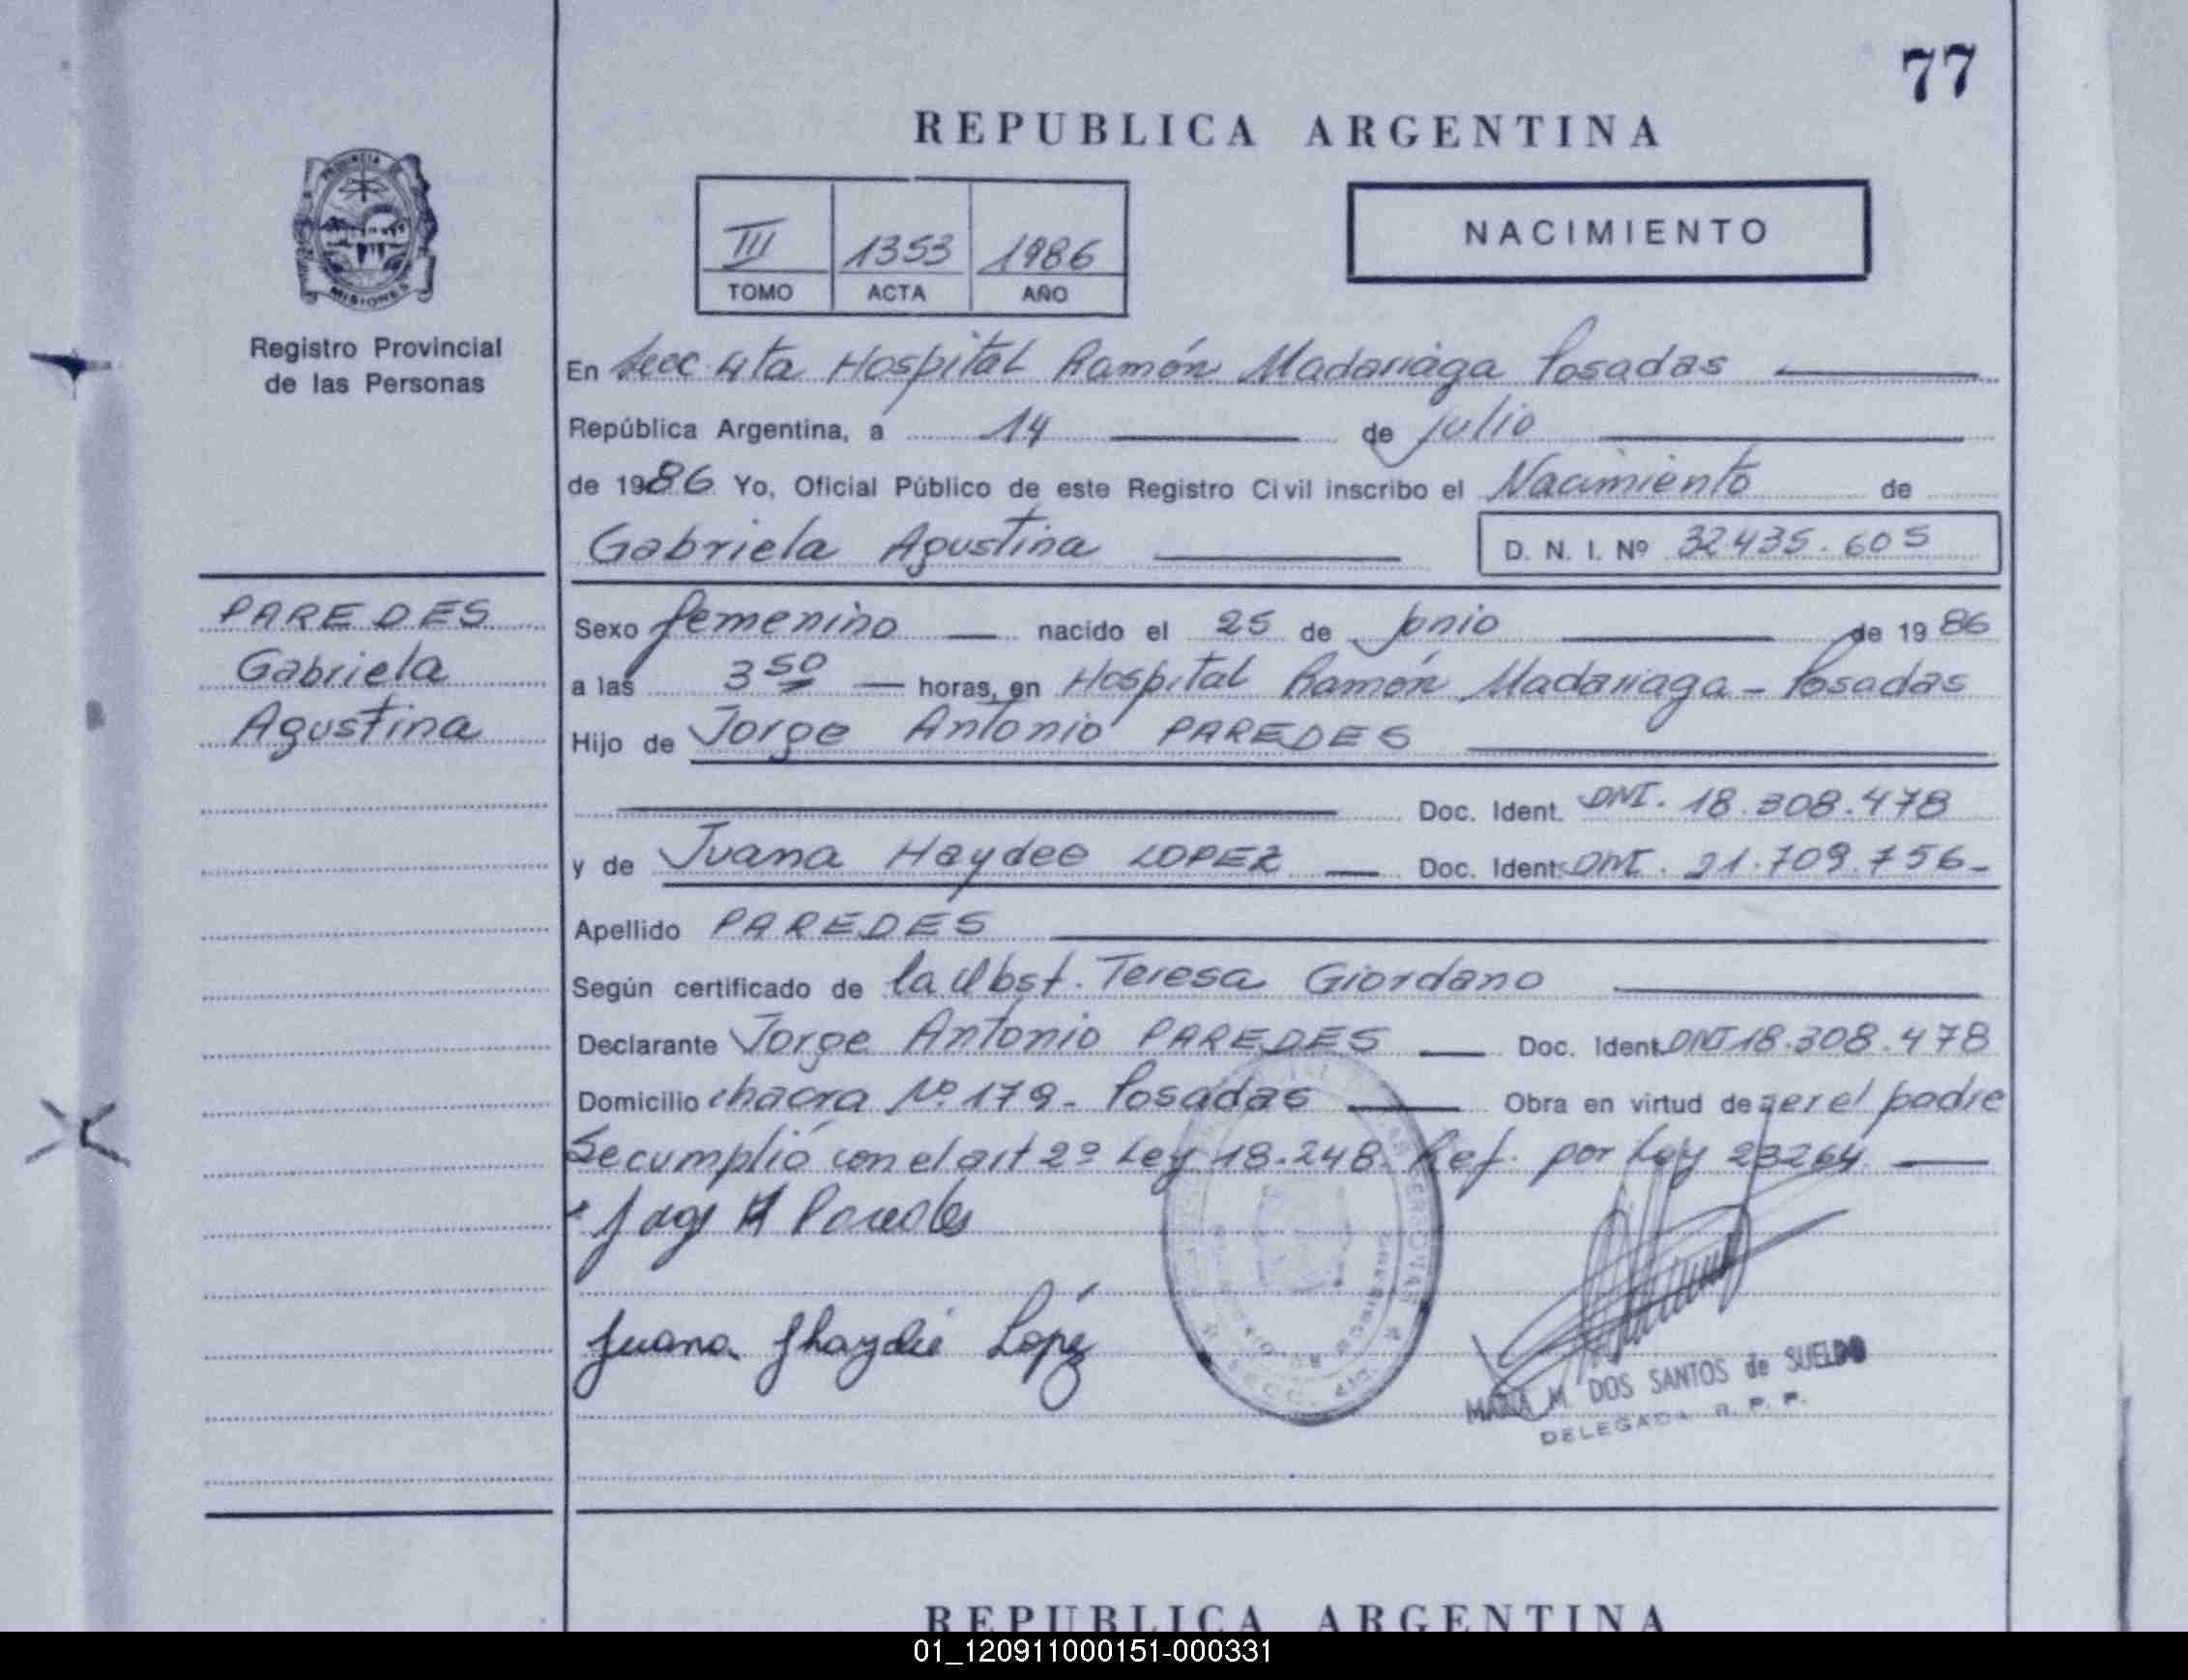 77
REPUBLICA ARGENTINA
PROVINCIA DE
MISIONES
Registro Provincial
de las Personas
III 1353 1986
TOMO ACTA AÑO
NACIMIENTO
En Secc. 4ta Hospital Ramón Madariaga Posadas
República Argentina, a 14 de Julio
de 1986 Yo, Oficial Público de este Registro Civil inscribo el Nacimiento de
Gabriela Agustina D. N. I. Nº 32435.605
PAREDES
Gabriela
Agustina
Sexo femenino nacido el 25 de Junio de 1986
a las 3 50 horas, en Hospital Ramón Madariaga - Posadas
Hijo de Jorge Antonio PAREDES
Doc. Ident. DNI. 18.308.478
y de Juana Haydee LOPEZ Doc. Ident. DNI. 21.709.756-
Apellido PAREDES
Según certificado de la Obst. Teresa Giordano
Declarante Jorge Antonio PAREDES Doc. Ident. DNI 18.308.478
Domicilio chacra Nº 179- Posadas Obra en virtud de ser el padre
Se cumplió con el art 2º Ley 18.248. Ref. por Ley 23264.
Juana Jhaydeé Lopéz
MARIA M. DOS SANTOS de SUELDO
DELEGADA R. P. P.
REPUBLICA ARGENTINA
01_120911000151-000331